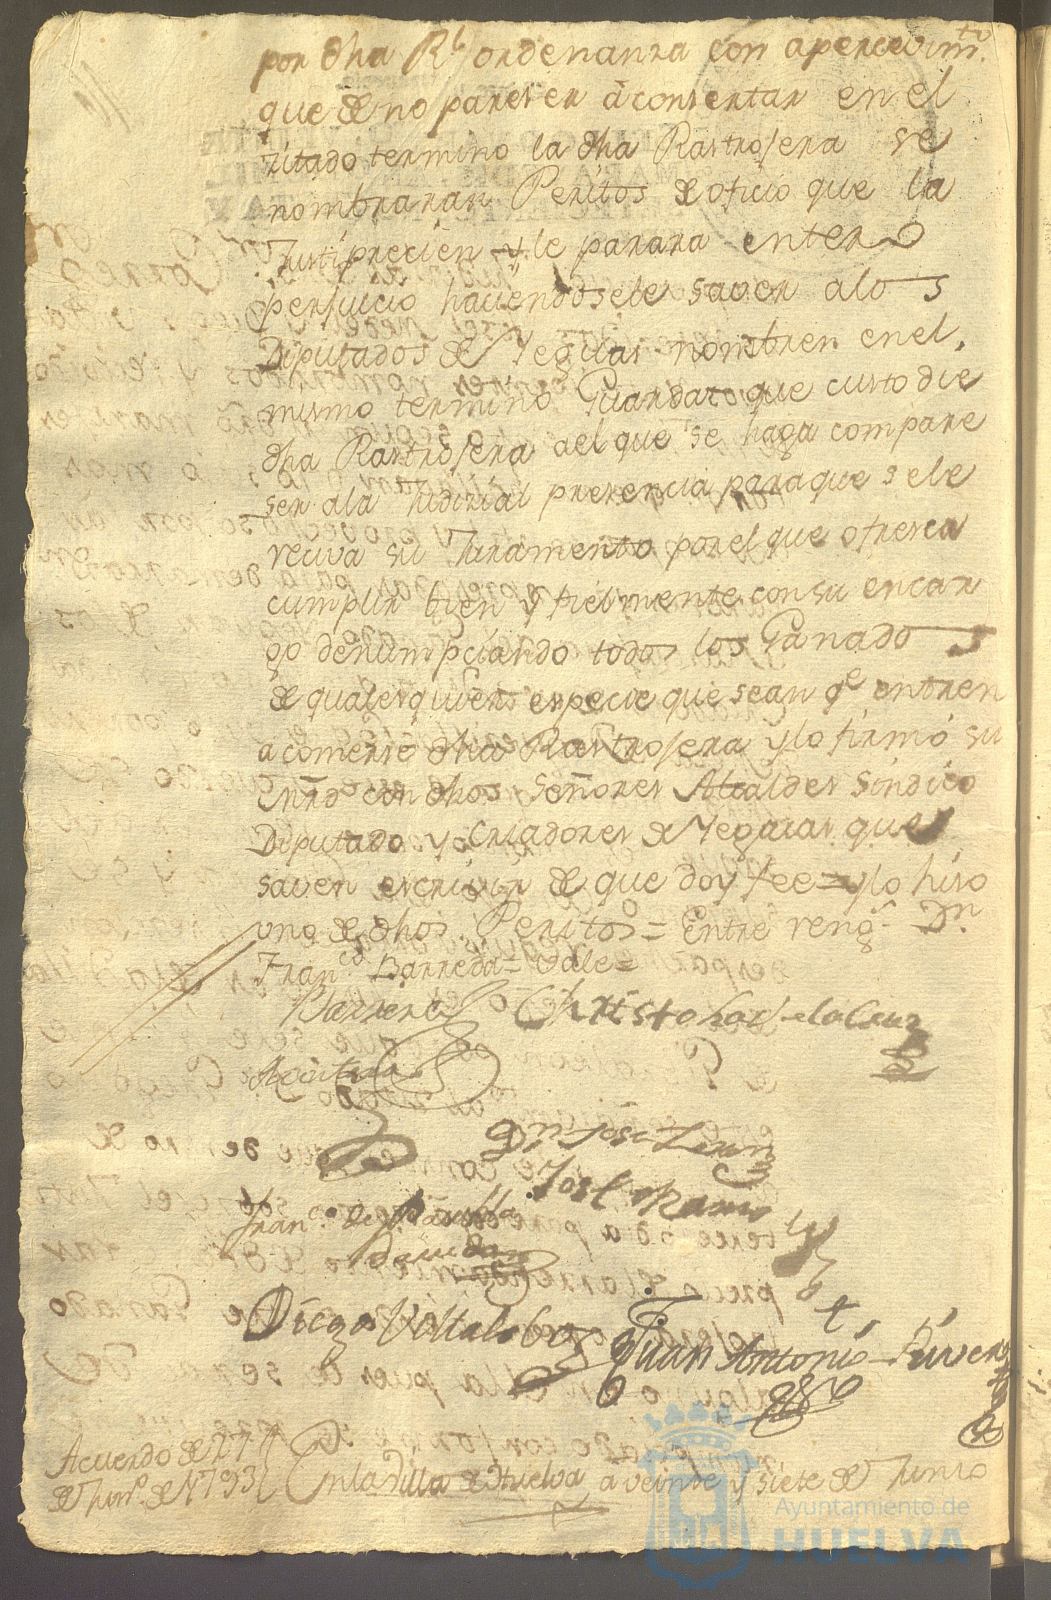 por dha Rl ordenanza con apercevimto
que de no pareser á consertar en el
zitado termino la dha Rastrojera se
nombraran Peritos de oficio que la
Justiprecien y le parara entero
perjuicio haciendosele saver alos
Diputados de Yeguas nombren en el
mismo termino Guarda que custodie
dha Rastrojera ael que se haga compare
ser ala Judizial presencia paraque sele
reciva su Juramento por el que ofresca
cumplir bien y fielmente con su encar
go denumpciando todos los Ganados
de qualesquiera especie que sean qe entren
a comerse dha Rastrojera y lo firmó su
mrd con dhos Señores Alcaldes Sindico
Diputado y Criadores de Yeguas que
saven escrivir de que doy fee = y lo hiso
uno de dhos Peritos = Entre rengs Dn
Franco Barreda = Vale =
Barrera Christobal de la Cruz
Dn Jose
Jose Ramirez
Franco de Paula
Diego Villalobos
Juan Antonio Rivera
Acuerdo de 27
de Juno de 1793
En la Villa de Huelva a veinte y siete de Junio
Ayuntamiento de
HUELVA